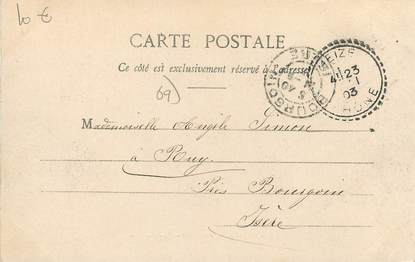 10 €
CARTE POSTALE
Ce côté est exclusivement réservé à l'adresse
69
EIZE
4 23
03
RHONE
BOURGOIN
Mademoiselle Angèle Simon
à Ruy
Près Bourgoin
Isère